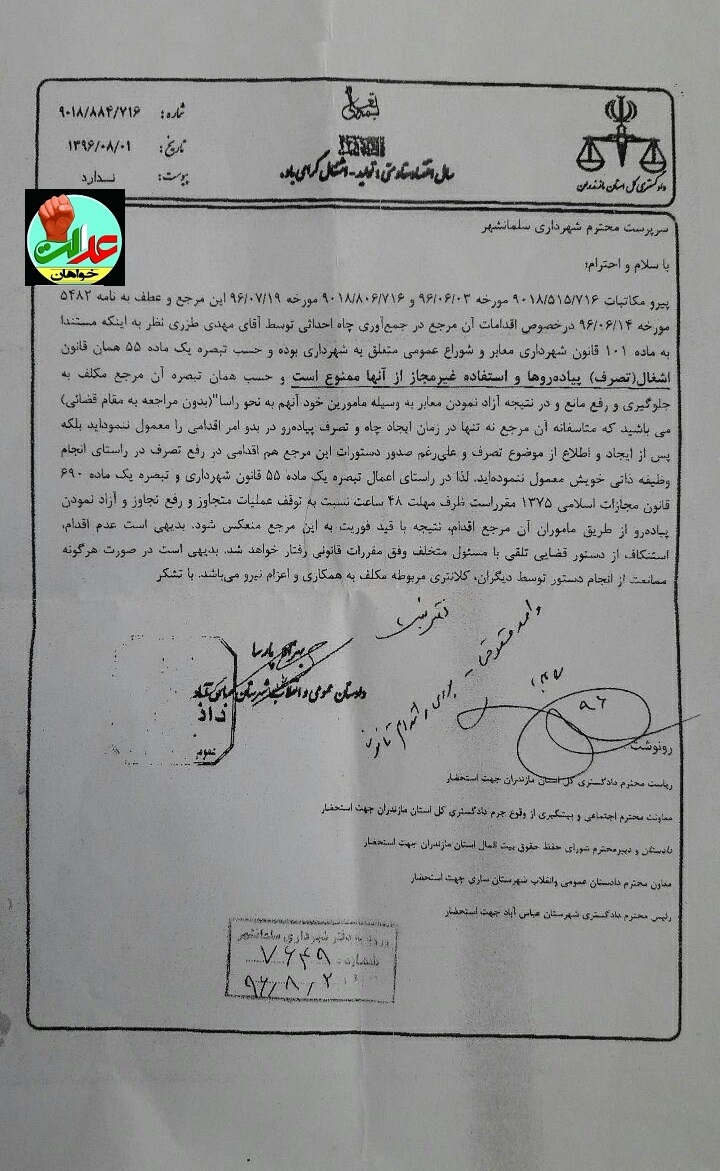 بسمه تعالی
شماره: ۹۰۱۸/۸۸۴/۷۱۶
تاریخ: ۱۳۹۶/۰۸/۰۱
پیوست: ندارد
سال اقتصاد مقاومتی: تولید - اشتغال گرامی باد.
دادگستری کل استان مازندران
عدالت
خواهان
سرپرست محترم شهرداری سلمانشهر
با سلام و احترام؛
پیرو مکاتبات ۹۰۱۸/۵۱۵/۷۱۶ مورخه ۹۶/۰۶/۰۳ و ۹۰۱۸/۸۰۶/۷۱۶ مورخه ۹۶/۰۷/۱۹ این مرجع و عطف به نامه ۵۴۸۲
مورخه ۹۶/۰۶/۱۴ درخصوص اقدامات آن مرجع در جمع‌آوری چاه احداثی توسط آقای مهدی طرزی نظر به اینکه مستندا
به ماده ۱۰۱ قانون شهرداری معابر و شوراع عمومی متعلق به شهرداری بوده و حسب تبصره یک ماده ۵۵ همان قانون
اشغال(تصرف) پیاده‌روها و استفاده غیرمجاز از آنها ممنوع است و حسب همان تبصره آن مرجع مکلف به
جلوگیری و رفع مانع و در نتیجه آزاد نمودن معابر به وسیله مامورین خود آنهم به نحو راسا"(بدون مراجعه به مقام قضائی)
می باشید که متاسفانه آن مرجع نه تنها در زمان ایجاد چاه و تصرف پیاده‌رو در بدو امر اقدامی را معمول ننموداید بلکه
پس از ایجاد و اطلاع از موضوع تصرف و علی‌رغم صدور دستورات این مرجع هم اقدامی در رفع تصرف در راستای انجام
وظیفه ذاتی خویش معمول ننموده‌اید. لذا در راستای اعمال تبصره یک ماده ۵۵ قانون شهرداری و تبصره یک ماده ۶۹۰
قانون مجازات اسلامی ۱۳۷۵ مقرراست ظرف مهلت ۴۸ ساعت نسبت به توقف عملیات متجاوز و رفع تجاوز و آزاد نمودن
پیاده‌رو از طریق ماموران آن مرجع اقدام، نتیجه با قید فوریت به این مرجع منعکس شود. بدیهی است عدم اقدام،
استنکاف از دستور قضایی تلقی با مسئول متخلف وفق مقررات قانونی رفتار خواهد شد. بدیهی است در صورت هرگونه
ممانعت از انجام دستور توسط دیگران، کلانتری مربوطه مکلف به همکاری و اعزام نیرو می‌باشد. با تشکر
دفتر ثبت
بهزاد پارسا
دادستان عمومی و انقلاب شهرستان عباس آباد
داد
عموم
۹۶
رونوشت
ریاست محترم دادگستری کل استان مازندران جهت استحضار
معاونت محترم اجتماعی و پیشگیری از وقوع جرم دادگستری کل استان مازندران جهت استحضار
دادستان و دبیرمحترم شورای حفظ حقوق بیت المال استان مازندران جهت استحضار
معاون محترم دادستان عمومی وانقلاب شهرستان ساری جهت استحضار
رئیس محترم دادگستری شهرستان عباس آباد جهت استحضار
ورود به دفتر شهرداری سلمانشهر
شماره ۷۶۴۹
۹۶/۸/۲